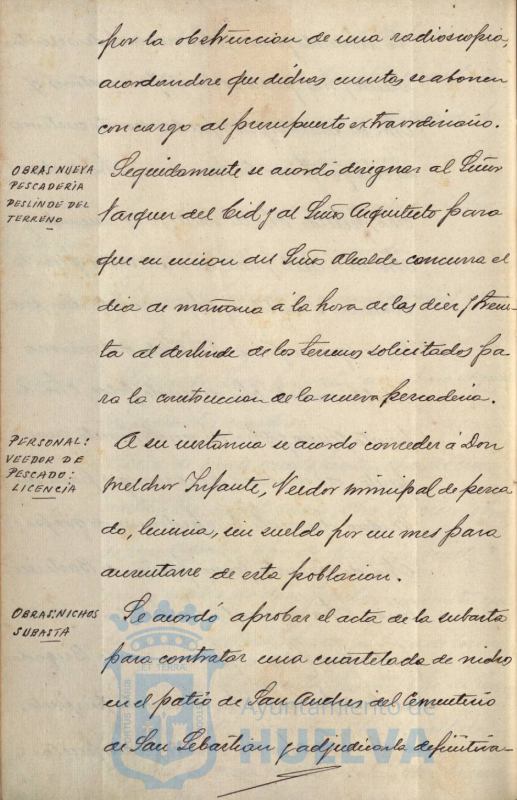 por la obstruccion de una radioscopia,
acordandose que dichas cuentas se abonen
con cargo al presupuesto extraordinario.
OBRAS NUEVA
PESCADERÍA
DESLINDE DEL
TERRENO
Seguidamente se acordó designar al Señor
Vazquez del Cid y al Señor Arquitecto para
que en union del Señor Alcalde concurra el
dia de mañana á la hora de las diez y trein-
ta al deslinde de los terrenos solicitados pa
ra la construccion de la nueva pescaderia.
PERSONAL:
VEEDOR DE
PESCADO:
LICENCIA
A su instancia se acordó conceder á Don
Melchor Infante, Veedor municipal de pesca
do, licencia, sin sueldo por un mes para
ausentarse de esta poblacion.
OBRAS: NICHOS
SUBASTA
Se acordó aprobar el acta de la subasta
para contratar una cuartelada de nichos
en el patio de San Andres del Cementerio
de San Sebastian y adjudicarla definitiva-
PORTUS MARIS
ET TERRÆ
CUSTODIA
Ayuntamiento de
HUELVA